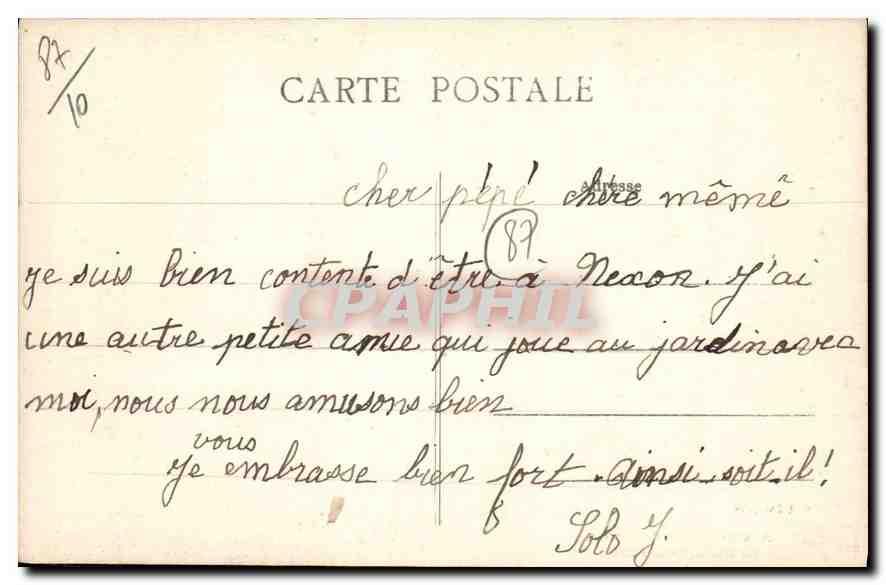 87/10
CARTE POSTALE
Adresse
cher pépé chère mêmê
87
Je suis bien contente d'être à Nexon. J'ai
CPAPHIL
une autre petite amie qui joue au jardin avec
moi, nous nous amusons bien
vous
Je embrasse bien fort ainsi soit-il!
Solo J.